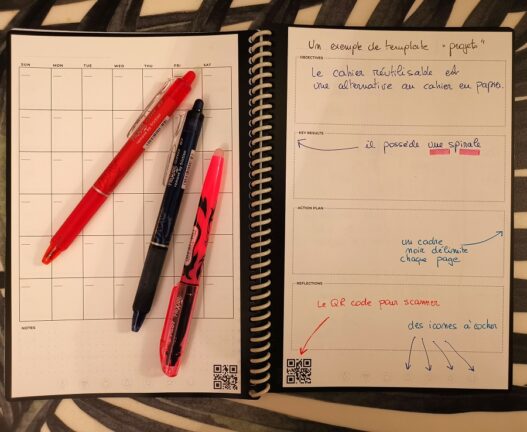 SUN MON TUE WED THU FRI SAT
NOTES
Un exemple de template "projets"
OBJECTIVES
Le cahier réutilisable est
une alternative au cahier en papier.
KEY RESULTS
il possède une spirale
ACTION PLAN
un cadre
noir délimite
chaque page
REFLECTIONS
Le QR code pour scanner
des icones à cocher